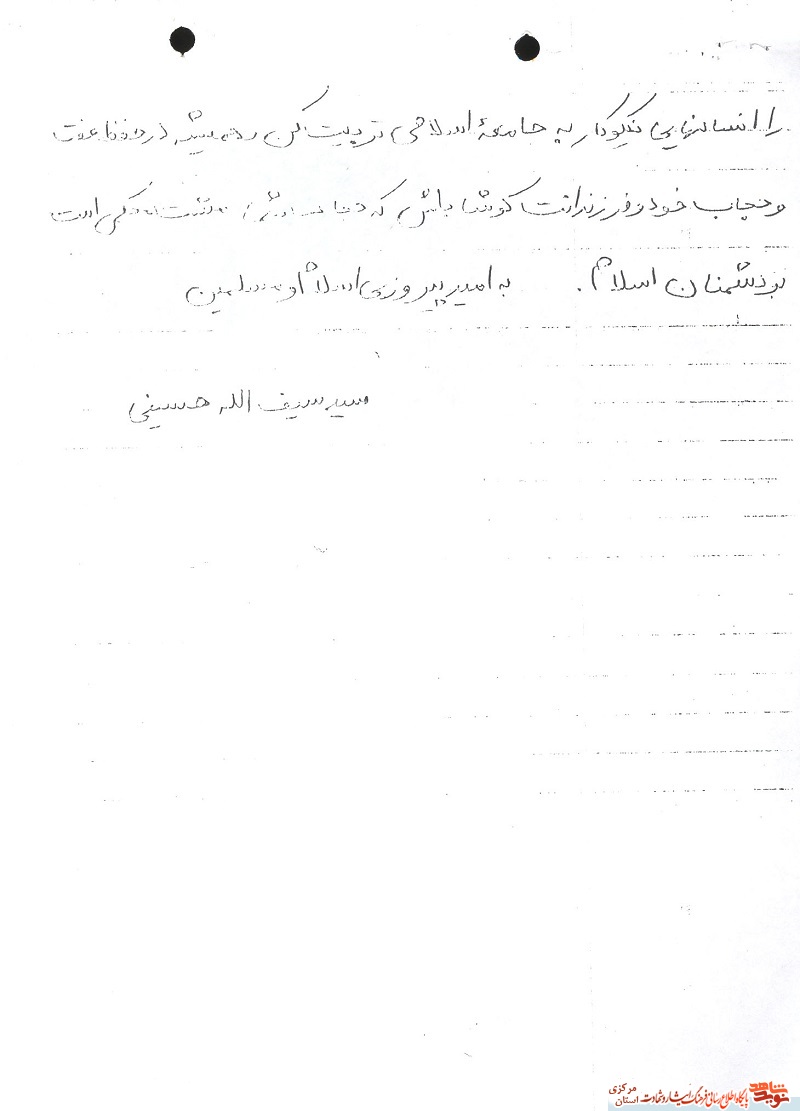 را انسانهایی نیکوکار به جامعهٔ اسلامی تربیت کن و همیشه در حفظ عفت
و حجاب خود و فرزندانت کوشا باش که مشت محکمی است
بر دشمنان اسلام. به امید پیروزی اسلام و مسلمین
سید سیف الله حسینی
نوید شاهد
پایگاه اطلاع رسانی فرهنگ ایثار و شهادت
استان مرکزی